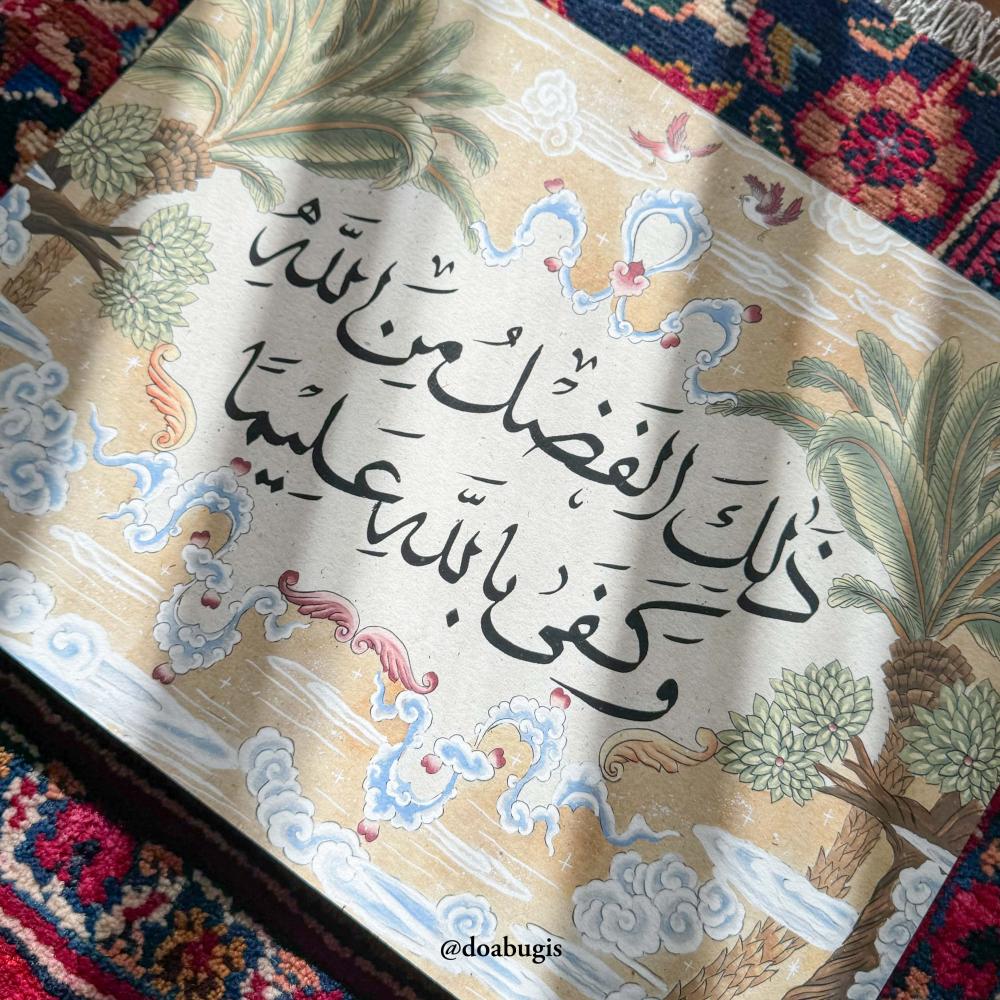 ذَٰلِكَ الْفَضْلُ مِنَ اللَّهِ
وَكَفَىٰ بِاللَّهِ عَلِيمًا
@doabugis